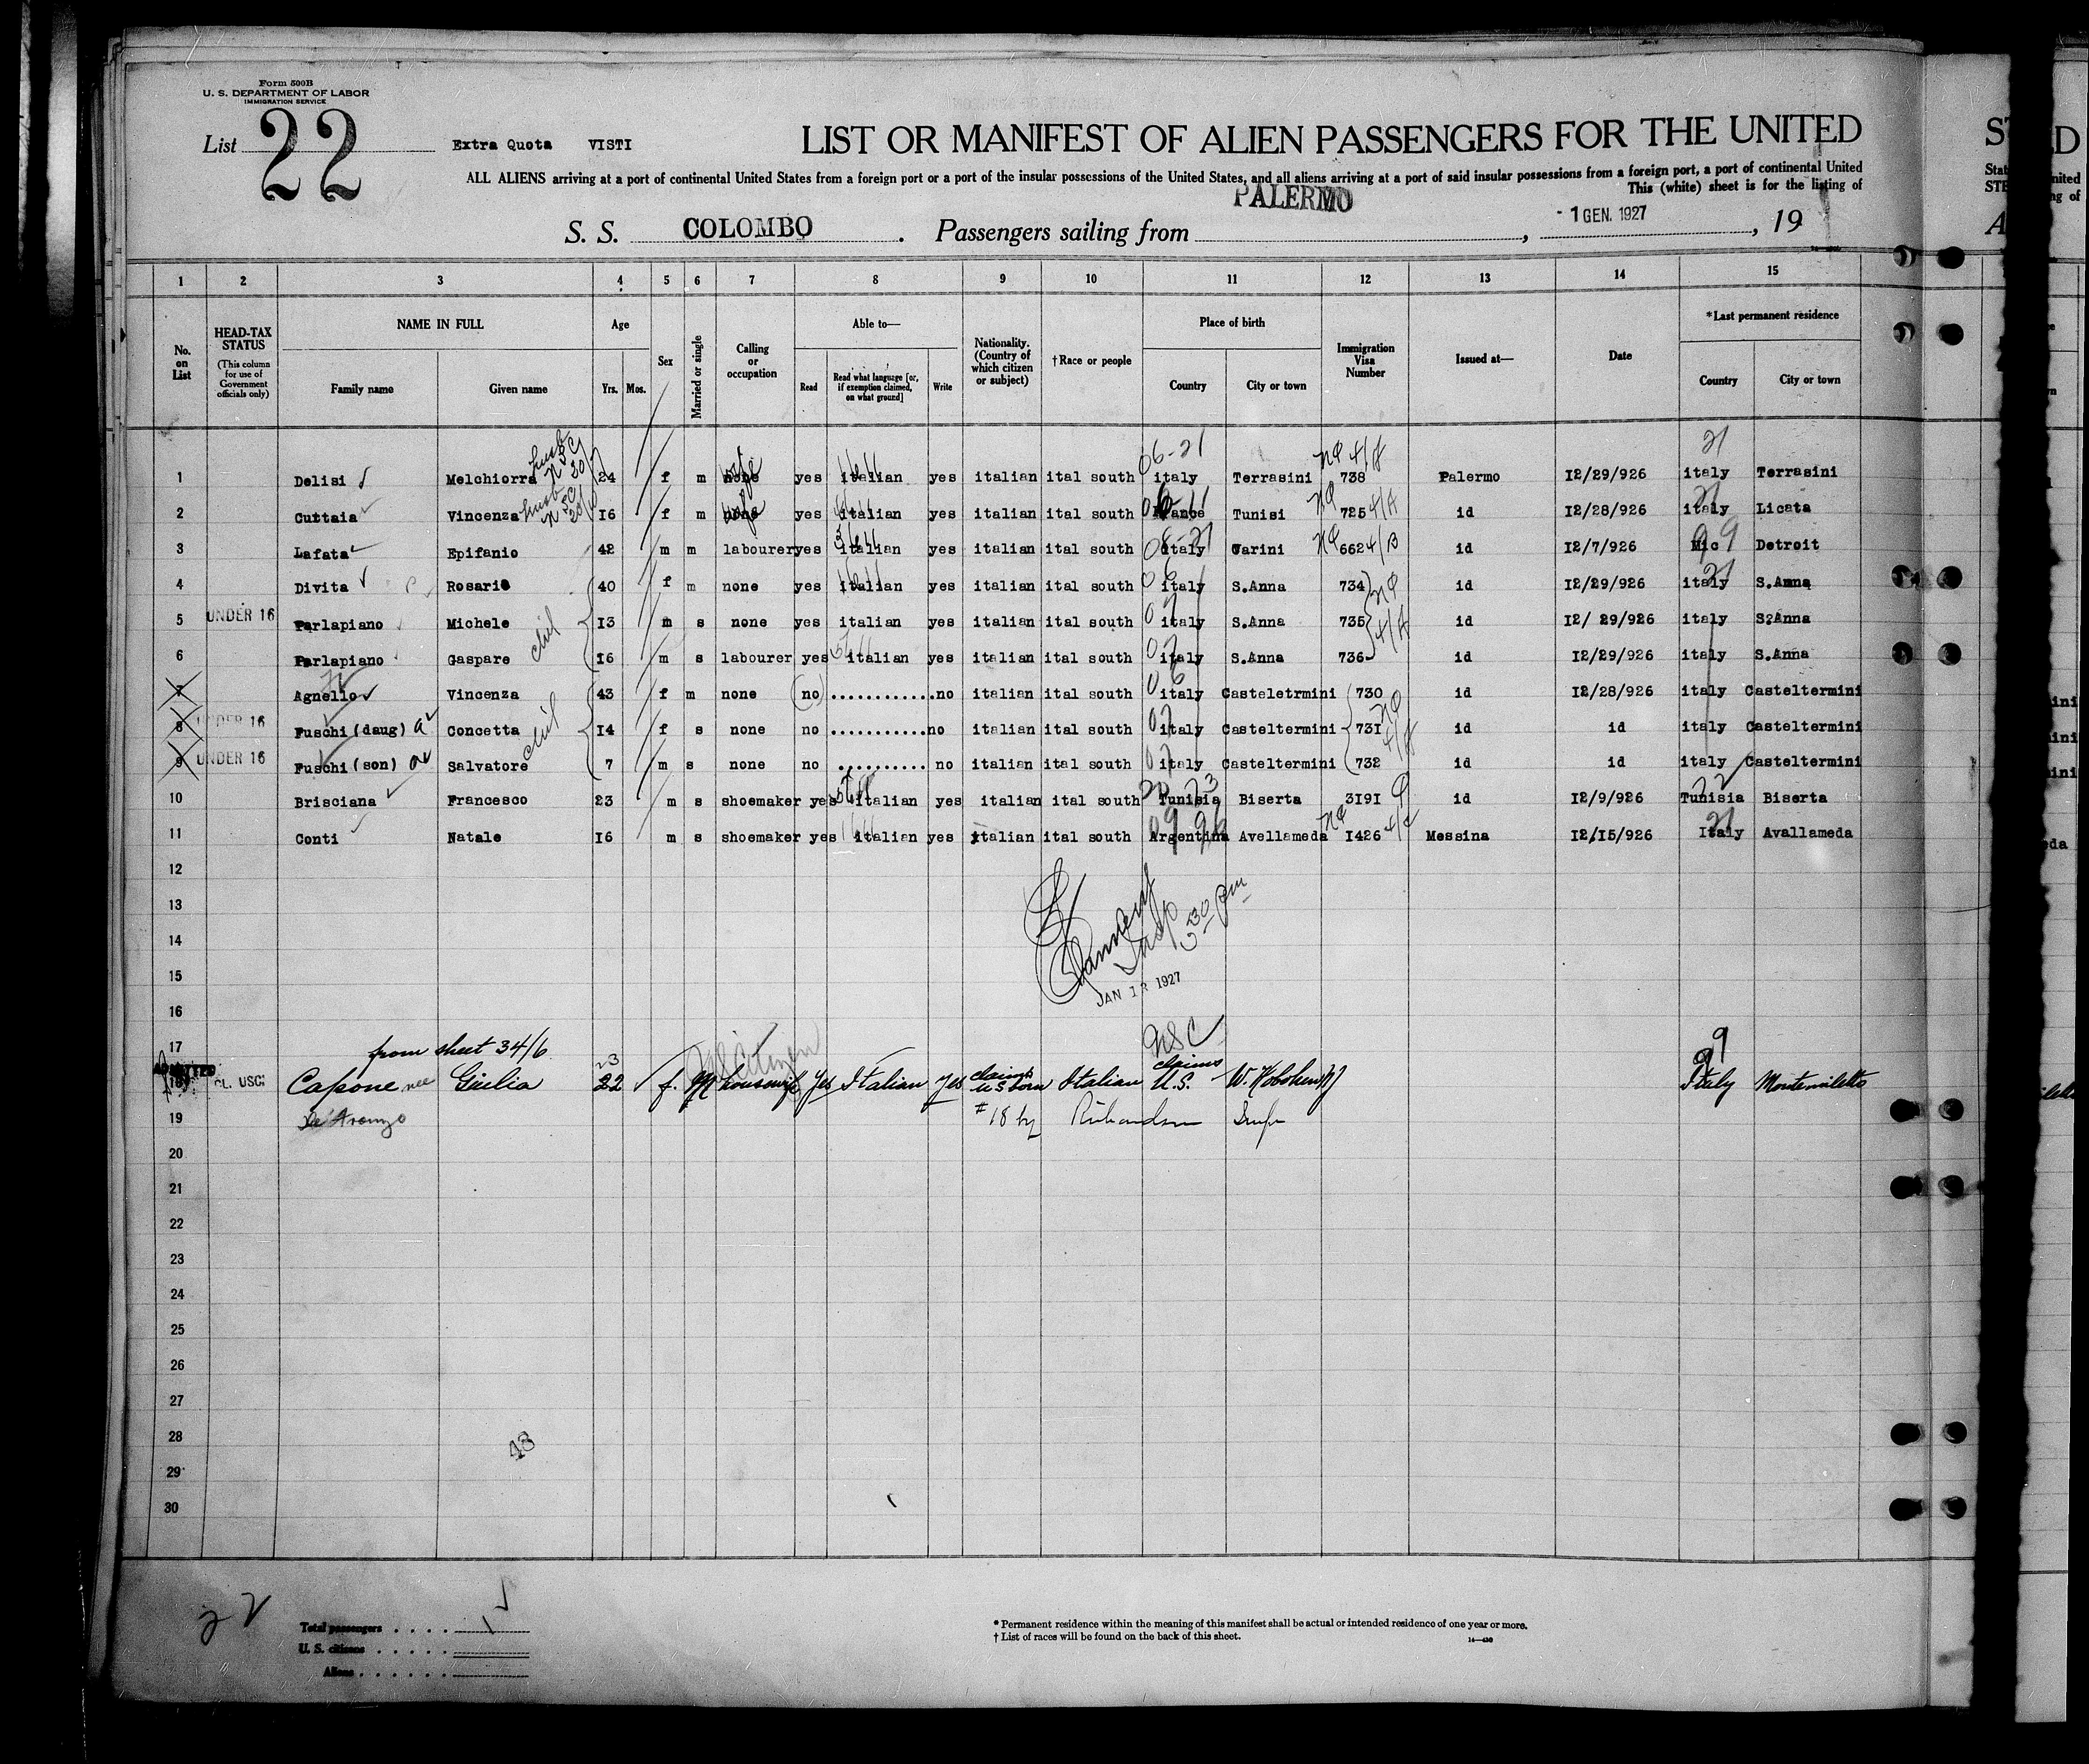 Form 500B
U. S. DEPARTMENT OF LABOR
IMMIGRATION SERVICE
List 22
Extra Quota VISTI
LIST OR MANIFEST OF ALIEN PASSENGERS FOR THE UNITED
ALL ALIENS arriving at a port of continental United States from a foreign port or a port of the insular possessions of the United States, and all aliens arriving at a port of said insular possessions from a foreign port, a port of continental United
This (white) sheet is for the listing of
PALERMO
S. S. COLOMBO. Passengers sailing from , - 1 GEN. 1927 , 19
1 2 3 4 5 6 7 8 9 10 11 12 13 14 15
No. on List
HEAD-TAX STATUS
(This column for use of Government officials only)
NAME IN FULL
Family name Given name
Age
Yrs. Mos.
Sex
Married or single
Calling or occupation
Able to—
Read
Read what language [or, if exemption claimed, on what ground]
Write
Nationality. (Country of which citizen or subject)
†Race or people
Place of birth
Country City or town
Immigration Visa Number
Issued at—
Date
*Last permanent residence
Country City or town
06-21 21
1 Delisi Melchiorra 24 f m none yes italian yes italian ital south italy Terrasini 738 Palermo 12/29/926 italy Terrasini
2 Cuttaia Vincenza 16 f m none yes italian yes italian ital south France Tunisi 725 id 12/28/926 italy Licata
3 Lafata Epifanio 42 m m labourer yes italian yes italian ital south italy Carini 662 id 12/7/926 Mic Detroit
4 Divita Rosario 40 f m none yes italian yes italian ital south italy S.Anna 734 id 12/29/926 italy S.Anna
5 UNDER 16 Parlapiano Michele 13 m s none yes italian yes italian ital south italy S.Anna 735 id 12/ 29/926 italy S?Anna
6 Parlapiano Gaspare 16 m s labourer yes italian yes italian ital south italy S.Anna 736 id 12/29/926 italy S.Anna
7 Agnello Vincenza 43 f m none no ............ no italian ital south italy Casteletrmini 730 id 12/28/926 italy Casteltermini
8 UNDER 16 Fuschi (daug) Concetta 14 f s none no ............ no italian ital south italy Casteltermini 731 id id italy Casteltermini
9 UNDER 16 Fuschi (son) Salvatore 7 m s none no .......... no italian ital south italy Casteltermini 732 id id italy Casteltermini
10 Brisciana Francesco 23 m s shoemaker yes italian yes italian ital south Tunisia Biserta 3191 id 12/9/926 Tunisia Biserta
11 Conti Natale 16 m s shoemaker yes italian yes italian ital south Argentina Avellameda 1426 Messina 12/15/926 Italy Avallameda
12
13
14
15
JAN 12 1927
16
17 from sheet 34/6 USC 9
ADMITTED
18 CL. USC. Capone nee Giulia 22 f. M housewife Yes Italian Yes claims US born Italian claims U.S. W. Hoboken NJ Italy Montemiletto
19 De Aronzo #18 by Richardson Insp
20
21
22
23
24
25
26
27
28
48
29
30
22
Total passengers
U. S. citizens
Aliens
* Permanent residence within the meaning of this manifest shall be actual or intended residence of one year or more.
† List of races will be found on the back of this sheet.
14—430